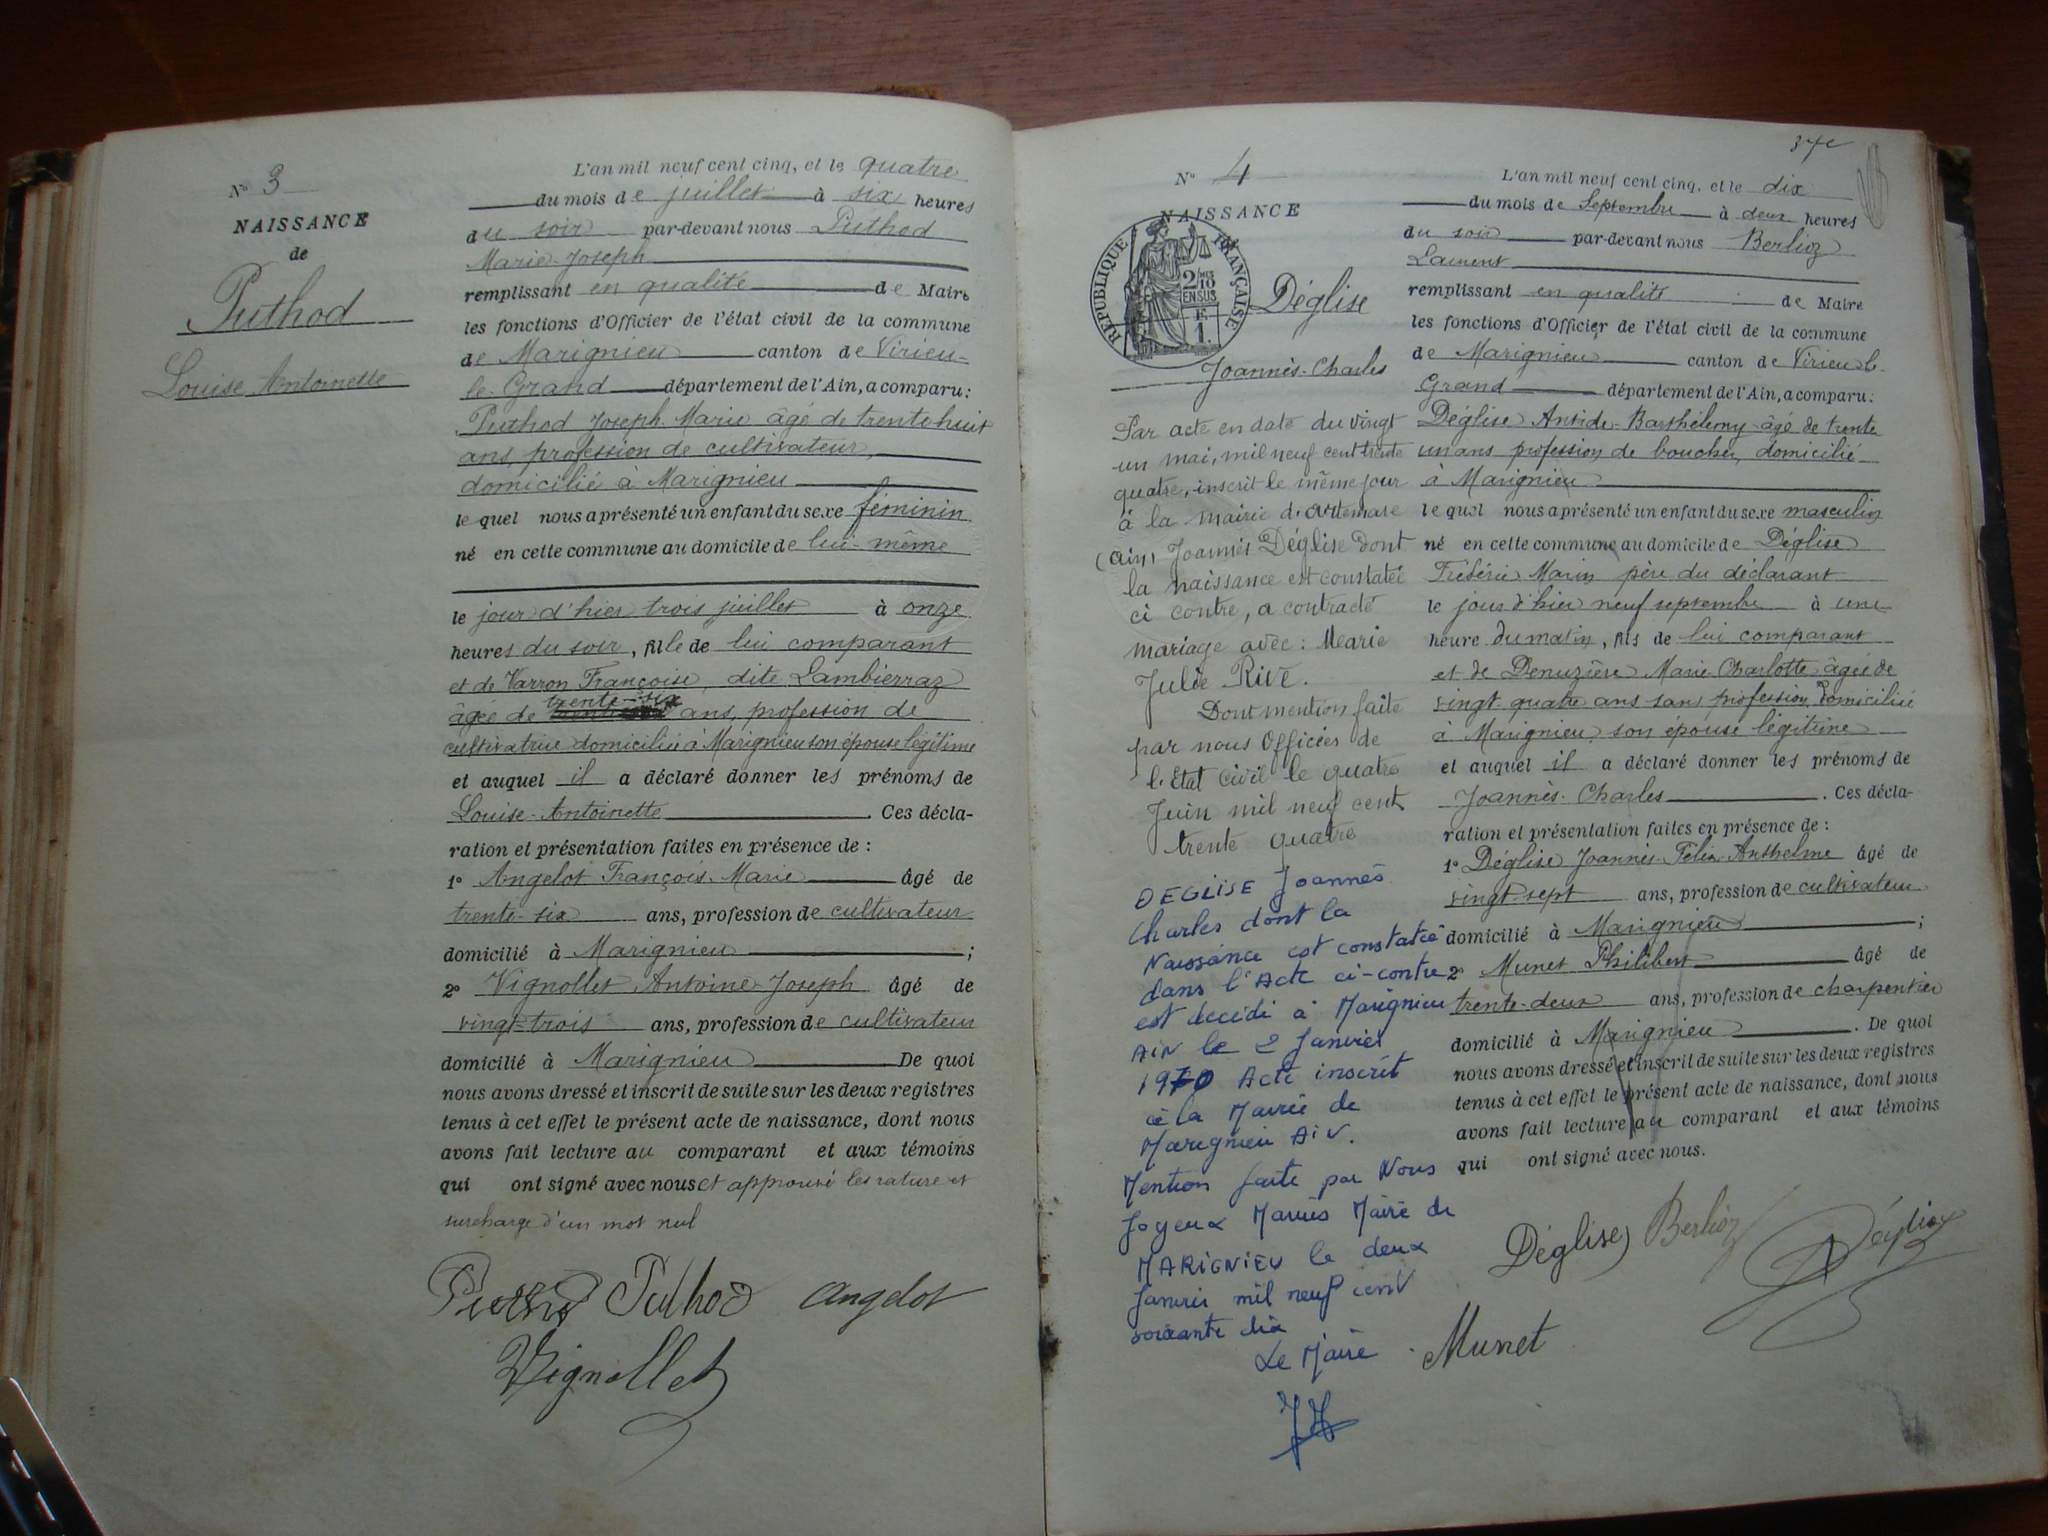 N° 3
NAISSANCE
de
Puthod
Louise Antoinette
L'an mil neuf cent cinq, et le quatre
du mois de juillet à six heures
du soir par-devant nous Puthod
Marie-Joseph
remplissant en qualité de Maire
les fonctions d'Officier de l'état civil de la commune
de Marignieu canton de Virieu-
le-Grand département de l'Ain, a comparu:
Puthod Joseph-Marie âgé de trente huit
ans, profession de cultivateur,
domicilié à Marignieu
lequel nous a présenté un enfant du sexe féminin
né en cette commune au domicile de lui-même
le jour d'hier trois juillet à onze
heures du soir, fille de lui comparant
et de Varron Françoise, dite Lambierraz
trente-six
âgée de ans, profession de
cultivatrice domiciliée à Marignieu son épouse légitime
et auquel il a déclaré donner les prénoms de
Louise-Antoinette. Ces décla-
ration et présentation faites en présence de :
1° Angelot François-Marie âgé de
trente-six ans, profession de cultivateur
domicilié à Marignieu ;
2° Vignollet Antoine-Joseph âgé de
vingt-trois ans, profession de cultivateur
domicilié à Marignieu De quoi
nous avons dressé et inscrit de suite sur les deux registres
tenus à cet effet le présent acte de naissance, dont nous
avons fait lecture au comparant et aux témoins
qui ont signé avec nous et approuvé les rature et
surcharge d'un mot nul
Puthod Angelot
Vignollet
37e
N° 4
NAISSANCE
RÉPUBLIQUE FRANÇAISE
2/10 EN SUS
1.
Déglise
Joannès-Charles
Par acte en date du vingt
un mai, mil neuf cent trente
quatre, inscrit le même jour
à la mairie d'Artemare
(Ain) Joannès Déglise dont
la naissance est constatée
ci contre, a contracté
mariage avec : Marie
Julie Rive.
Dont mention faite
par nous Officier de
l'Etat civil le quatre
Juin mil neuf cent
trente quatre
DEGLISE Joannès
Charles dont la
Naissance est constatée
dans l'Acte ci-contre
est decédé à Marignieu
AiN le 2 Janvier
1970 Acte inscrit
à la Mairie de
Marignieu AiN.
Mention faite par Nous
Joyeux Marius Maire de
MARIGNIEU le deux
Janvier mil neuf cent
soixante dix
Le Maire
L'an mil neuf cent cinq, et le dix
du mois de Septembre à deux heures
du soir par-devant nous Berlioz
Laurent
remplissant en qualité de Maire
les fonctions d'Officier de l'état civil de la commune
de Marignieu canton de Virieu-le-
Grand département de l'Ain, a comparu:
Déglise Antide-Barthélemy âgé de trente
un ans profession de boucher, domicilié
à Marignieu
lequel nous a présenté un enfant du sexe masculin
né en cette commune au domicile de Déglise
Frédéric Marin père du déclarant
le jour d'hier neuf septembre à une
heure du matin, fils de lui comparant
et de Denuzière Marie-Charlotte âgée de
vingt-quatre ans sans profession, domiciliée
à Marignieu son épouse légitime
et auquel il a déclaré donner les prénoms de
Joannès-Charles. Ces décla-
ration et présentation faites en présence de :
1° Déglise Joannès-Félix-Anthelme âgé de
vingt-sept ans, profession de cultivateur
domicilié à Marignieu ;
2° Munet Philibert âgé de
trente-deux ans, profession de charpentier
domicilié à Marignieu. De quoi
nous avons dressé et inscrit de suite sur les deux registres
tenus à cet effet le présent acte de naissance, dont nous
avons fait lecture au comparant et aux témoins
qui ont signé avec nous.
Déglise Berlioz Déglise
Munet